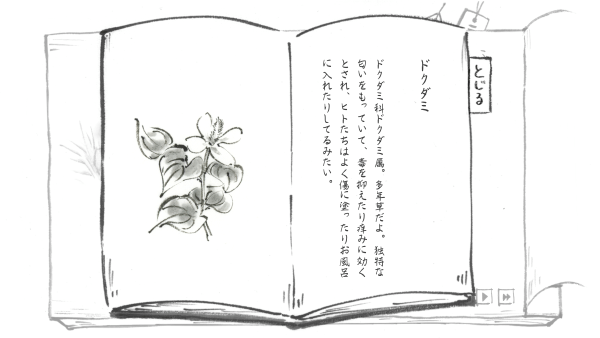 とじる
ドクダミ
ドクダミ科ドクダミ属。多年草だよ。独特な
匂いをもっていて、毒を抑えたり痒みに効く
とされ、ヒトたちはよく傷に塗ったりお風呂
に入れたりしてるみたい。